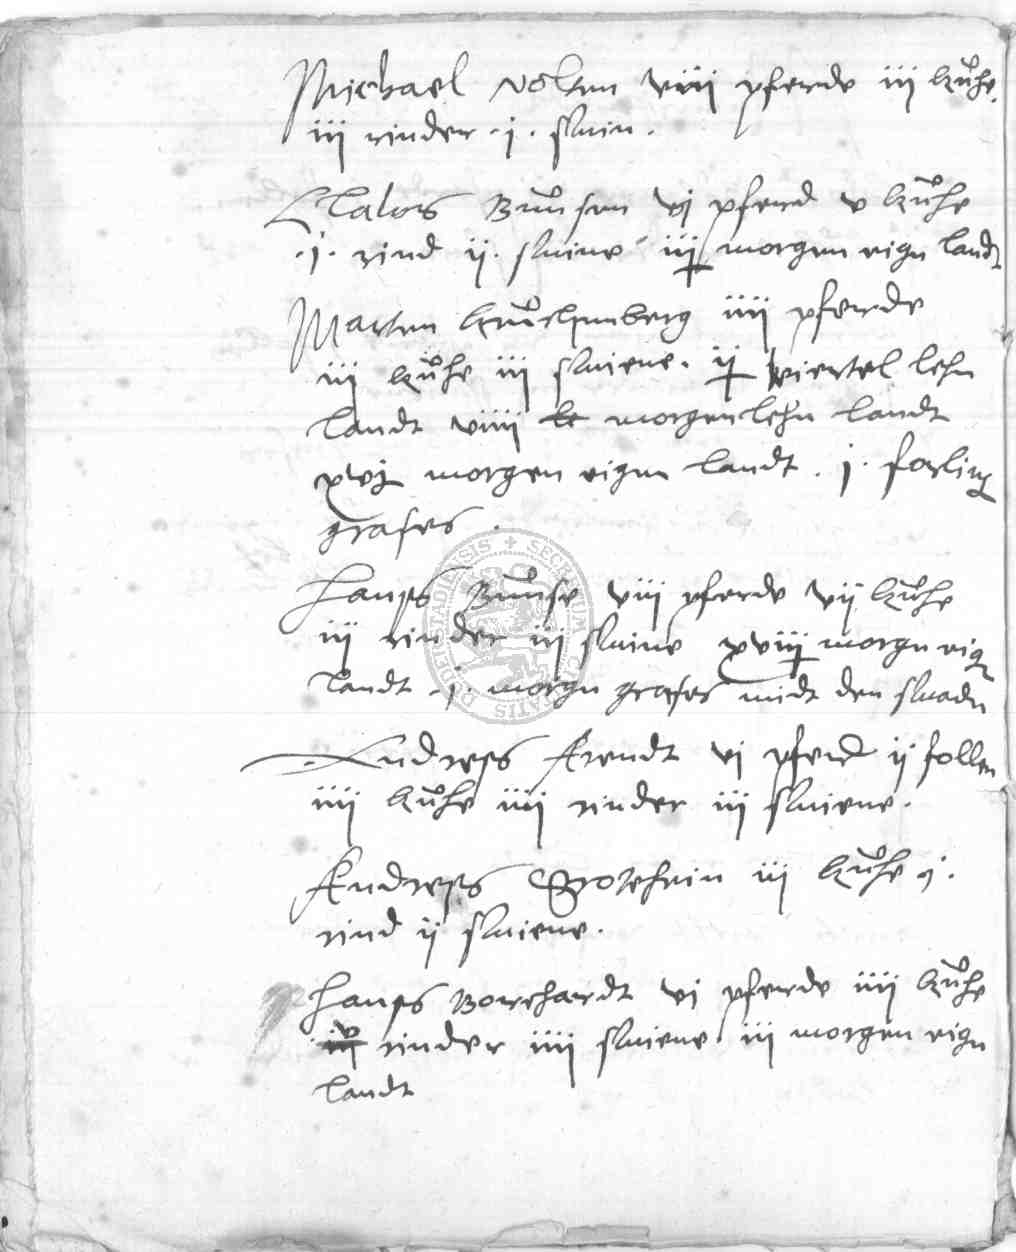 Michael Volkm viiii pferde iij kuͦhe.
iij rinder .j. swin.
Clawes Buͦnsen vj pferd v kuͦhe
.j. rind ij. swine iij morgen eign landt
Marten iiij pferde
iij kuͦhe iij swiene. ij viertel lehn
landt viiij le morgen lehn landt
xvj morgen eigen landt .j. forling
grases.
Hanss Buͦnse viij pferde vij kuͦhe
iij rinder iij swine xviij morgn eig
landt .j. morgn grases midt den swadn
Andress Arendt vj pferd ij follen
iiij kuͦhe iiij rinder iij swiene.
Andress Grotehein iij kuͦhe j.
rind ij swiene.
Hanss Borchardt vj pferde iiij kuͦhe
v rinder iiij swiene iij morgen eign
landt
SECRETUM CIVITATIS DUDERSTADIENSIS